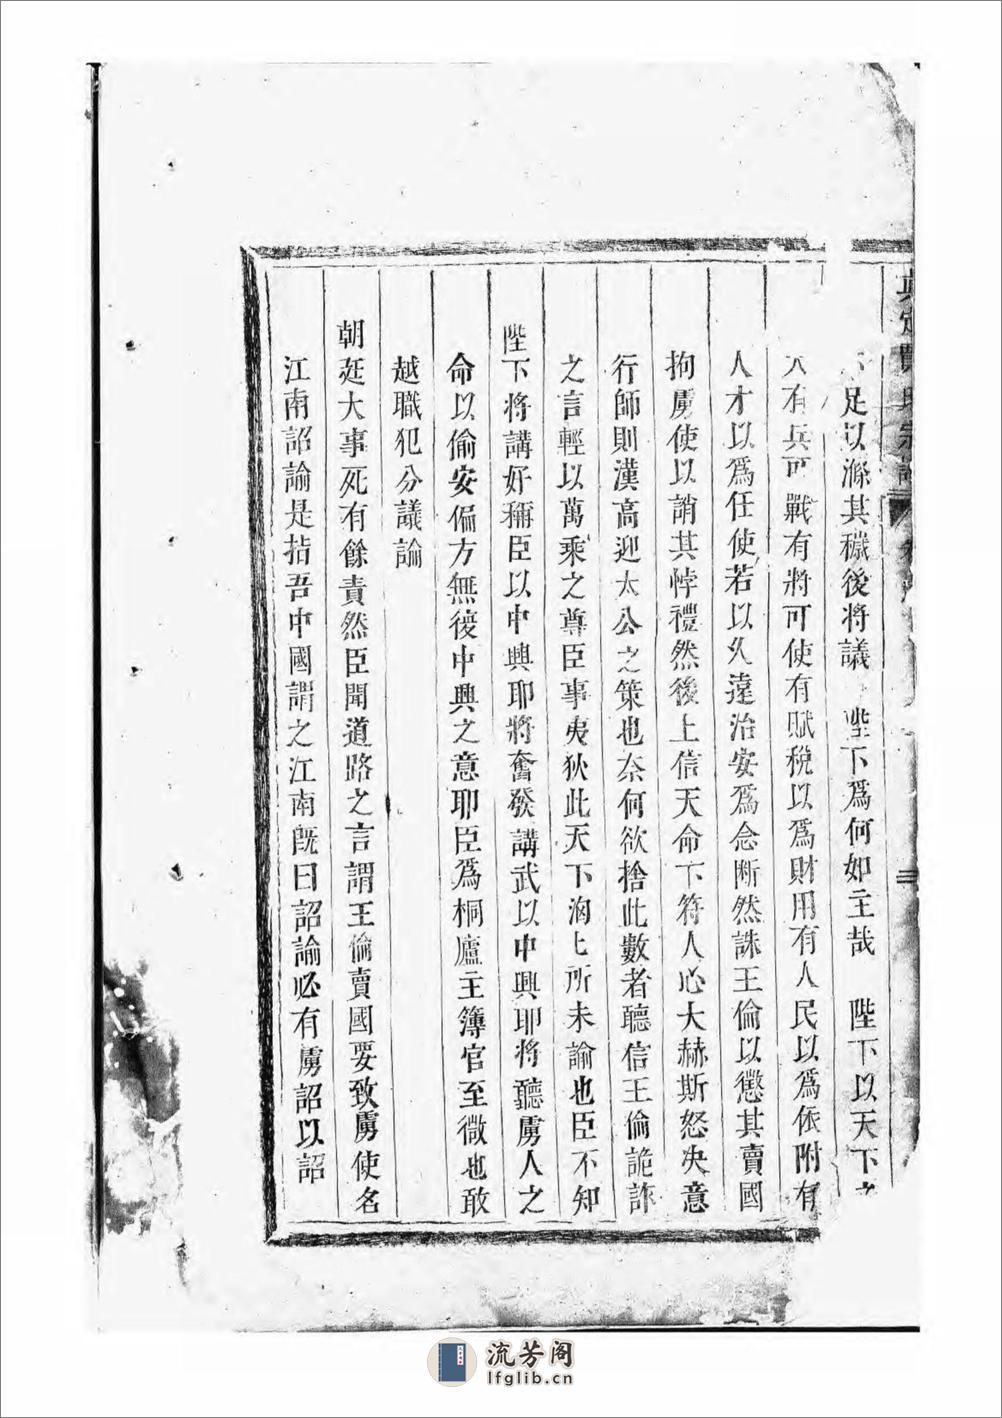 足以滌其穢後將議 陛下爲何如主哉 陛下以天下之
大有兵可戰有將可使有賦稅以爲財用有人民以爲依附有
人才以爲任使若以久遠治安爲念斷然誅王倫以懲其賣國
拘虜使以誚其悖禮然後上信天命下符人心大赫斯怒决意
行師則漢高迎太公之策也奈何欲捨此數者聽信王倫詭詐
之言輕以萬乘之尊臣事夷狄此天下洶匕所未諭也臣不知
陛下將講好稱臣以中興耶將奮發講武以中興耶將聽虜人之
命以偷安偏方無復中興之意耶臣爲桐廬主簿官至微也敢
越職犯分議論
朝廷大事死有餘責然臣聞道路之言謂王倫賣國要致虜使名
江南詔諭是指吾中國謂之江南既曰詔諭必有虜詔以詔
三
流芳阁
lfglib.cn